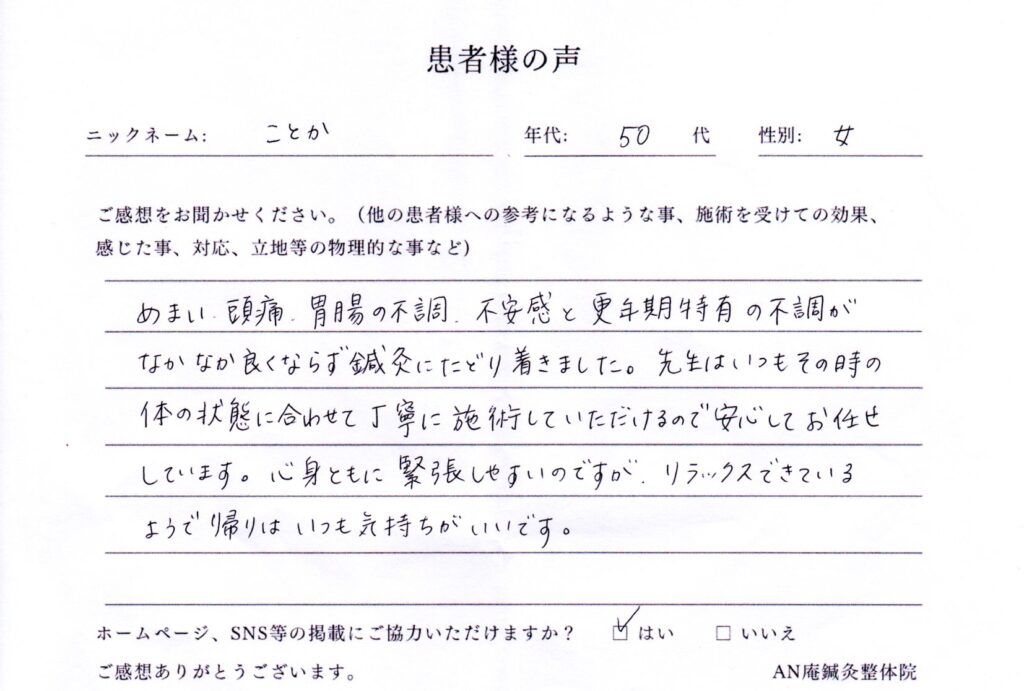 患者様の声
ニックネーム: ことか 年代: 50 代 性別: 女
ご感想をお聞かせください。（他の患者様への参考になるような事、施術を受けての効果、
感じた事、対応、立地等の物理的な事など）
めまい、頭痛、胃腸の不調、不安感と更年期特有の不調が
なかなか良くならず鍼灸にたどり着きました。先生はいつもその時の
体の状態に合わせて丁寧に施術していただけるので安心してお任せ
しています。心身ともに緊張しやすいのですが、リラックスできている
ようで帰りはいつも気持ちがいいです。
ホームページ、SNS等の掲載にご協力いただけますか？ ☑ はい □ いいえ
ご感想ありがとうございます。 AN庵鍼灸整体院